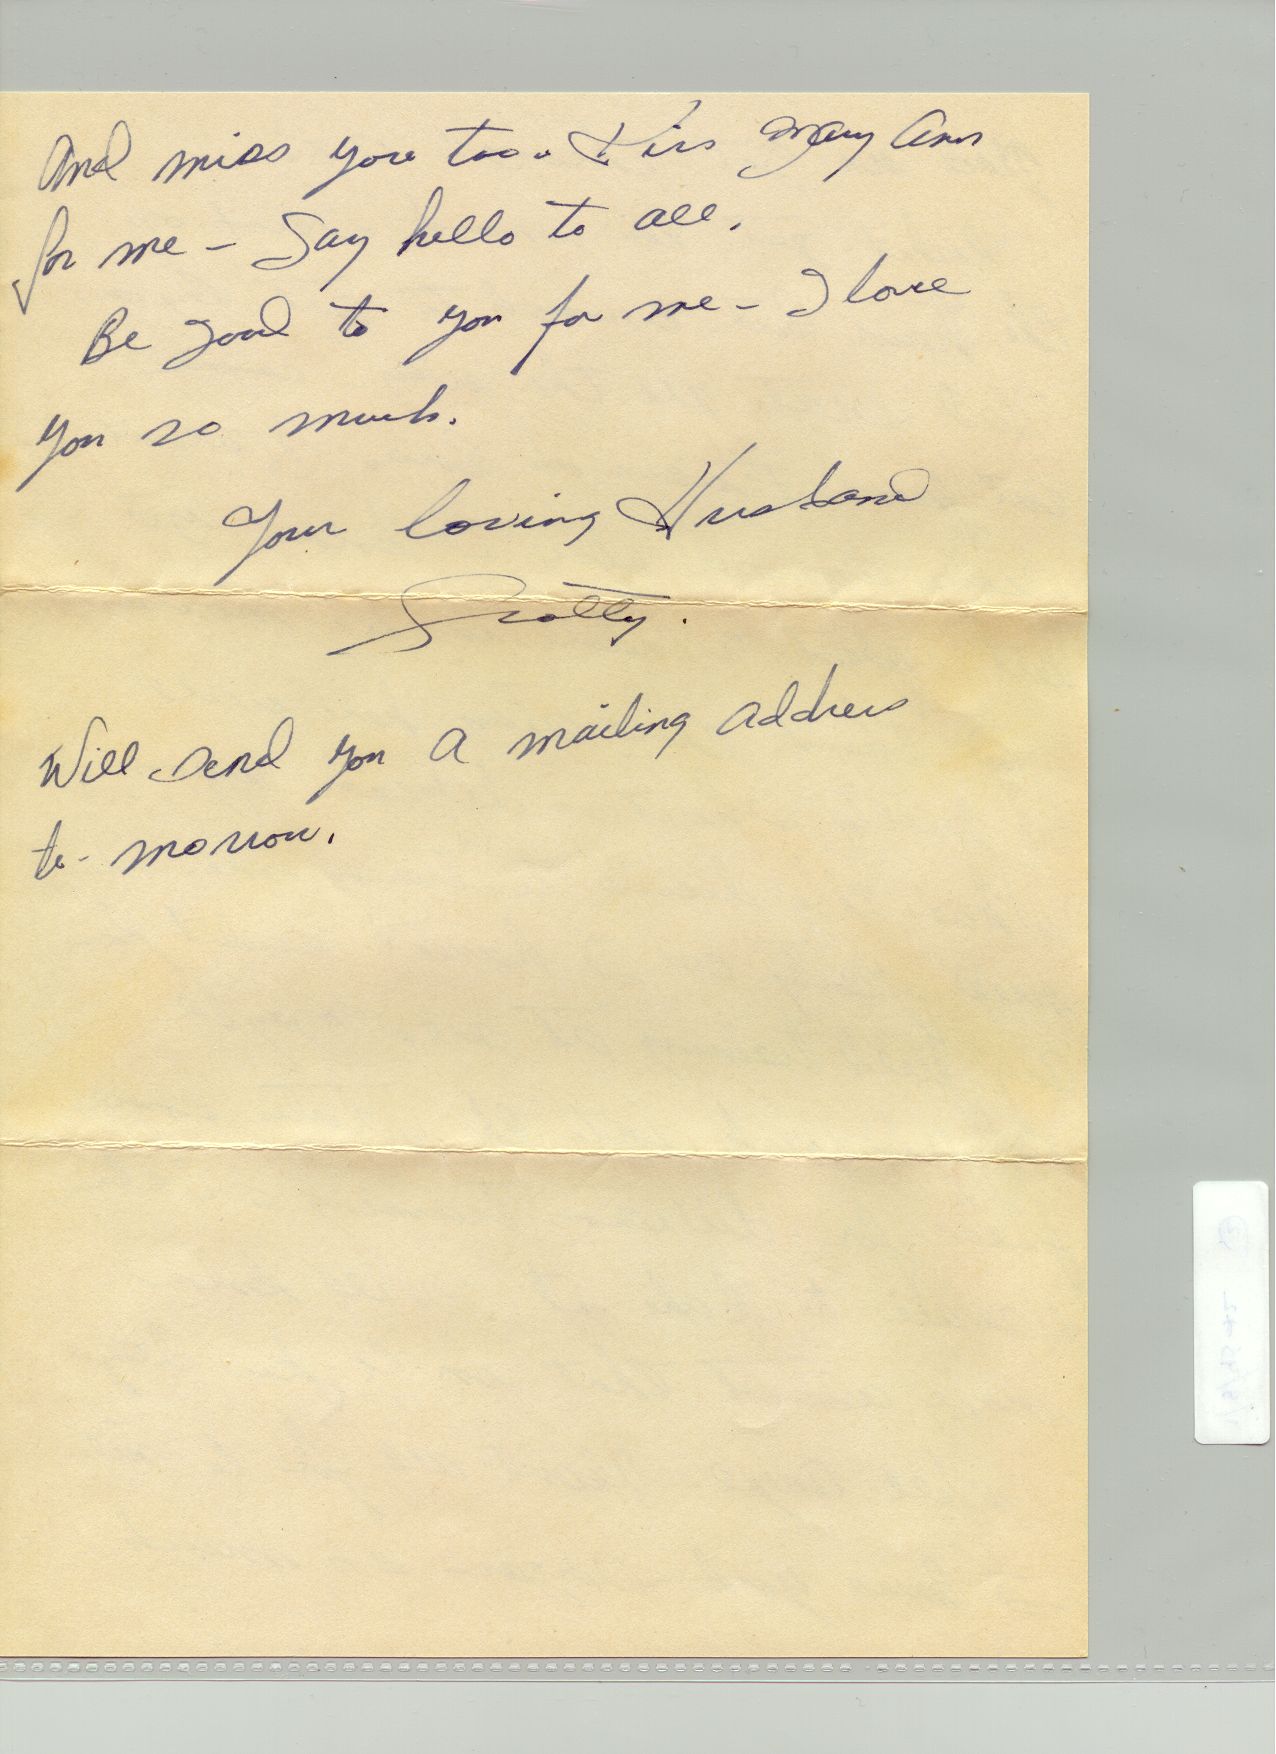 And miss you too. Kiss Mary Ann
for me - Say hello to all.
Be good to you for me - I love
you so much.
Your loving Husband
Scotty.
Will send you a mailing address
to-morrow.